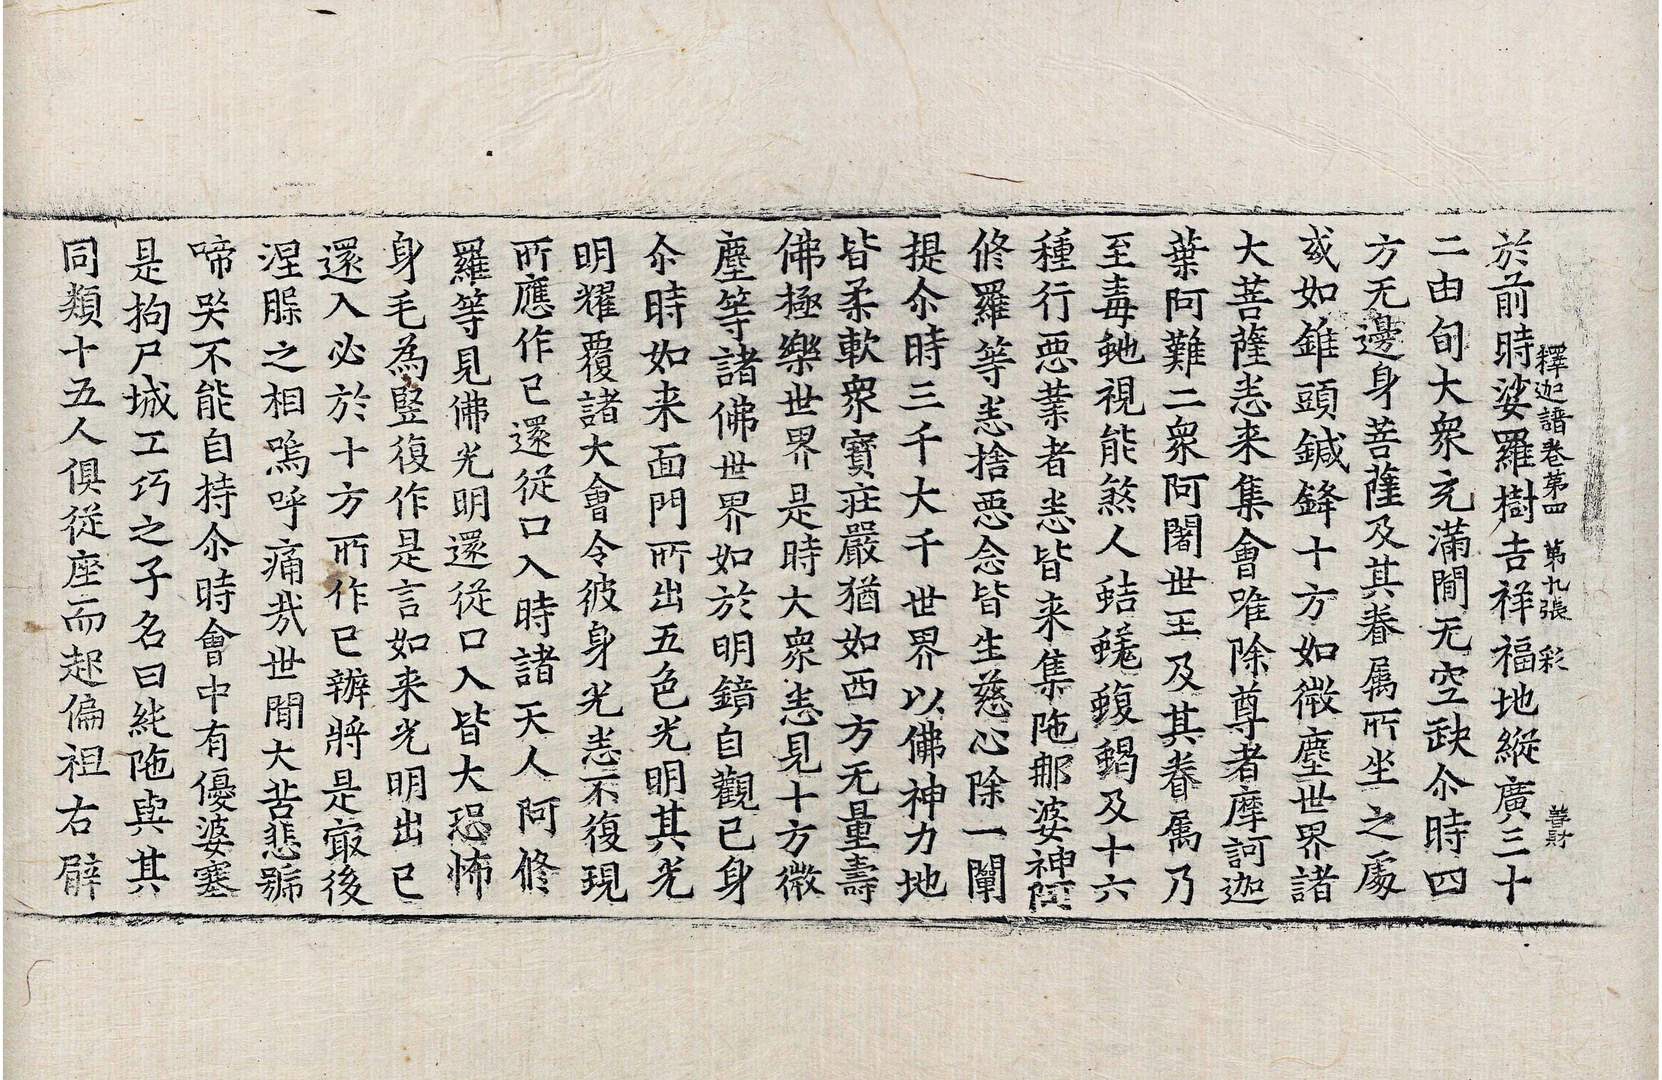 釋迦譜卷苐四 苐九張 彩 善財
於前時娑羅樹吉祥福地縱廣三十
二由旬大衆充滿閒无空缺尒時四
方无邊身菩薩及其眷属所坐之處
或如錐頭鍼鋒十方如微塵世界諸
大菩薩悉来集會唯除尊者摩訶迦
葉阿難二衆阿闍世王及其眷属乃
至毒虵視能煞人蛣蜣蝮蝎及十六
種行惡業者悉皆来集陁那婆神阿
修羅等悉捨惡念皆生慈心除一闡
提尒時三千大千世界以佛神力地
皆柔軟衆寶莊嚴猶如西方无量壽
佛極樂世界是時大衆悉見十方微
塵等諸佛世界如於明鏡自觀己身
尒時如来面門所出五色光明其光
明耀覆諸大會令彼身光悉不復現
所應作已還從口入時諸天人阿修
羅等見佛光明還從口入皆大恐怖
身毛為竪復作是言如来光明出已
還入必於十方所作已辦將是㝡後
涅槃之相嗚呼痛㢤世閒大苦悲號
啼哭不能自持尒時會中有優婆塞
是拘尸城工巧之子名曰純陁與其
同類十五人俱從座而起偏袒右臂